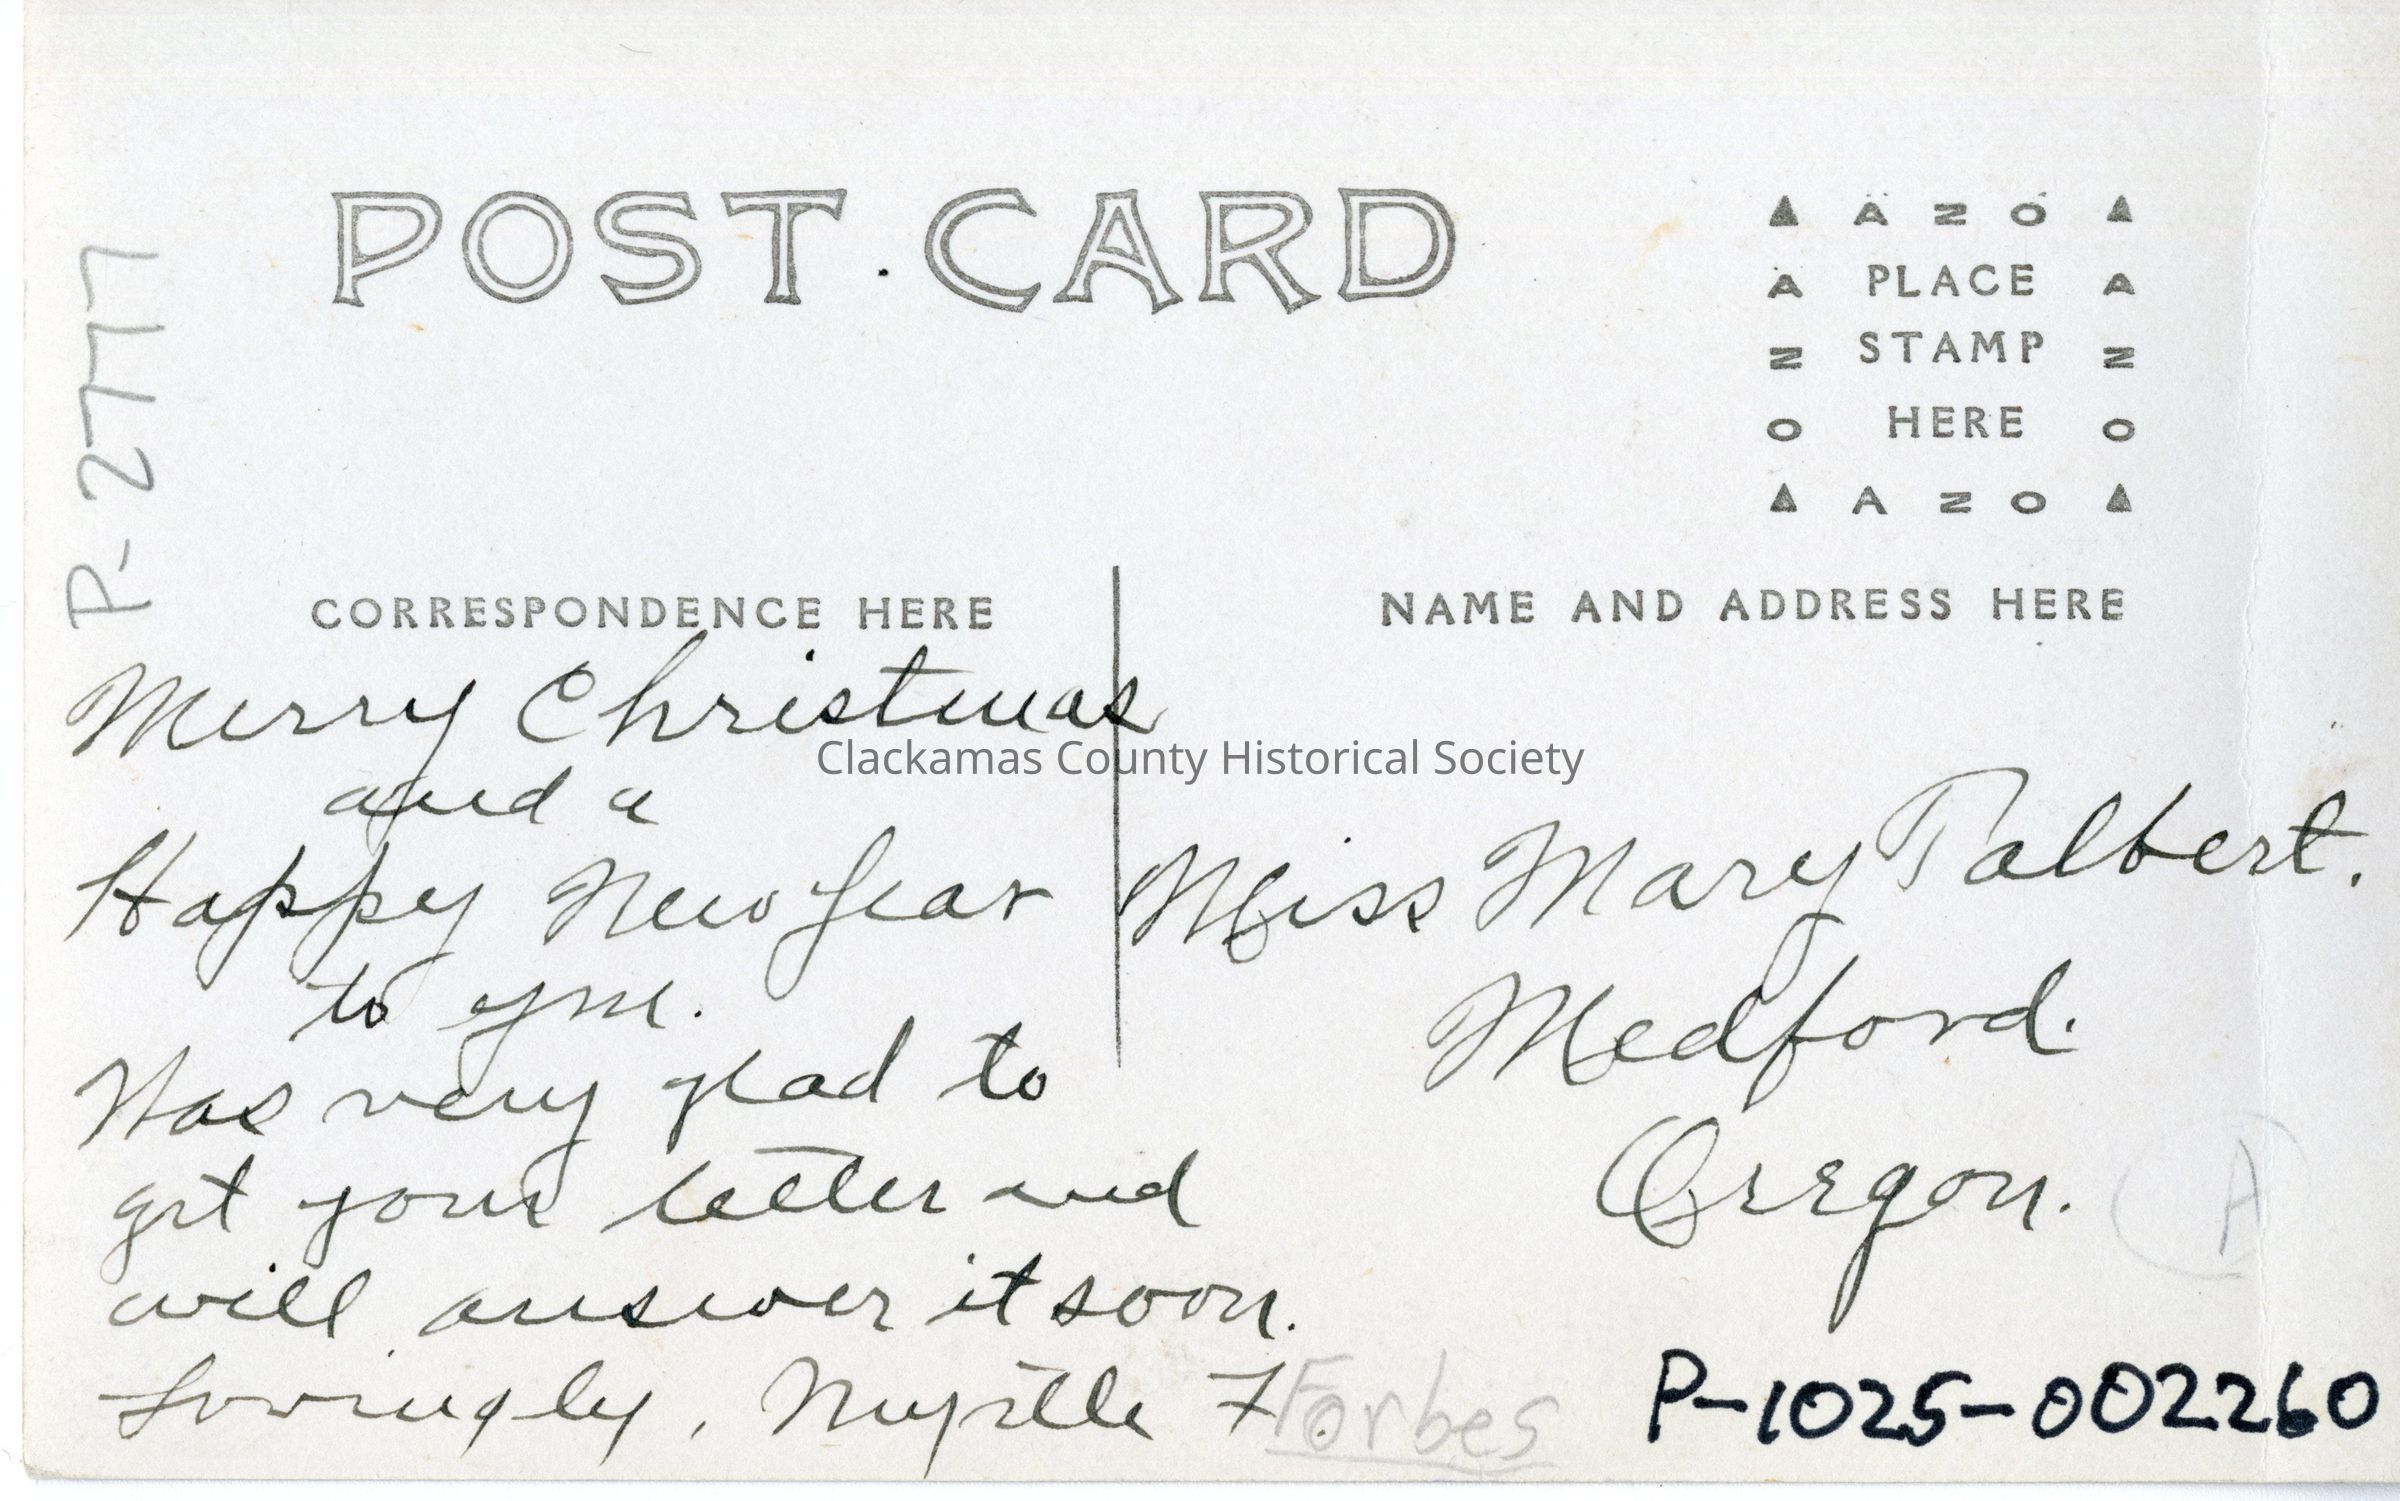 POST CARD
AZO
PLACE
STAMP
HERE
AZO
AZO
AZO
P-2777
CORRESPONDENCE HERE
NAME AND ADDRESS HERE
Merry Christmas
and a
Happy New Year
to you.
Was very glad to
get your letter and
will answer it soon.
Lovingly, Myrtle F.
Forbes
Clackamas County Historical Society
Miss Mary Talbert.
Medford.
Oregon.
A
P-1025-002260